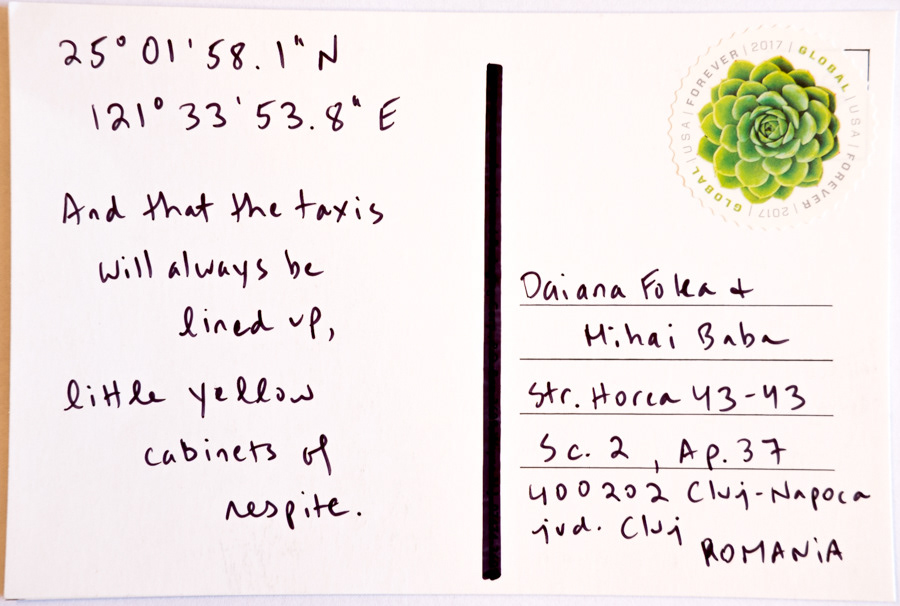 25° 01' 58.1" N
121° 33' 53.8" E
And that the taxis
will always be
lined up,
little yellow
cabinets of
respite.
GLOBAL | USA | FOREVER | 2017 | GLOBAL | USA | FOREVER | 2017
Daiana Folea +
Mihai Baba
Str. Horea 43-43
Sc. 2, Ap. 37
400202 Cluj-Napoca
jud. Cluj
ROMANiA